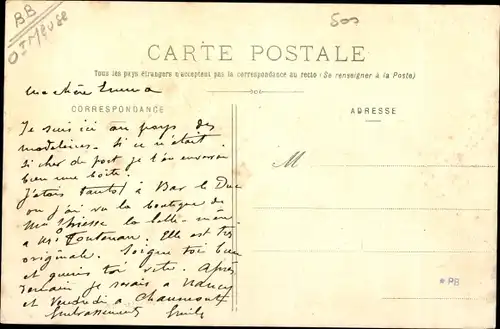 BB
01 Meuse
500
CARTE POSTALE
Tous les pays étrangers n'acceptent pas la correspondance au recto (Se renseigner à la Poste)
Ma chère Emma
CORRESPONDANCE
ADRESSE
Je suis ici au pays des
madeleines. Si ce n'était
si cher de port je t'en enverrai
bien une boîte.
J'étais tantôt à Bar le Duc
ou j'ai vu la boutique de
la belle-mère
à Mr Toutenan. Elle est très
originale. Soigne toi bien
et guéris toi vite. Après
demain je serais à Nancy
et Vendredi à Chaumont
Embrassements
M
* PB